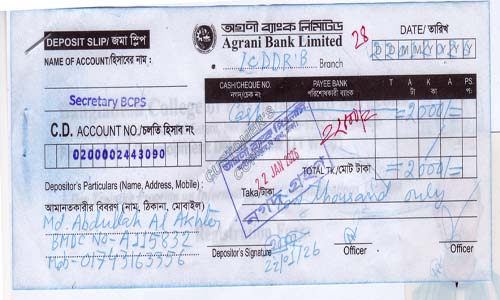 DEPOSIT SLIP/ জমা স্লিপ
অগ্রণী ব্যাংক লিমিটেড
Agrani Bank Limited
28
DATE/ তারিখ
NAME OF ACCOUNT/হিসাবের নাম :
ICDDR'B Branch
Secretary BCPS
CASH/CHEQUE NO. নগদ/চেক নং
PAYEE BANK পরিশোধকারী ব্যাংক
T A K A টাকা
PS. প:
Cash
=2000/=
C.D. ACCOUNT NO./চলতি হিসাব নং
0200002443090
22 JAN 2026
নগদ গ্রহণ
TOTAL TK./মোট টাকা
=2000/=
Depositor's Particulars (Name, Address, Mobile) :
আমানতকারীর বিবরণ (নাম, ঠিকানা, মোবাইল)
Taka/টাকা
thousand only
Md. Abdullah Al Akhter
BMDC No- A115832
Depositor's Signature
22/01/26
Officer
Officer